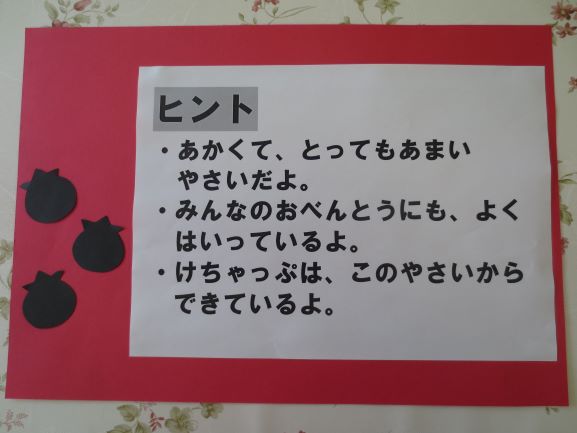 ヒント
・あかくて、とってもあまい
やさいだよ。
・みんなのおべんとうにも、よく
はいっているよ。
・けちゃっぷは、このやさいから
できているよ。